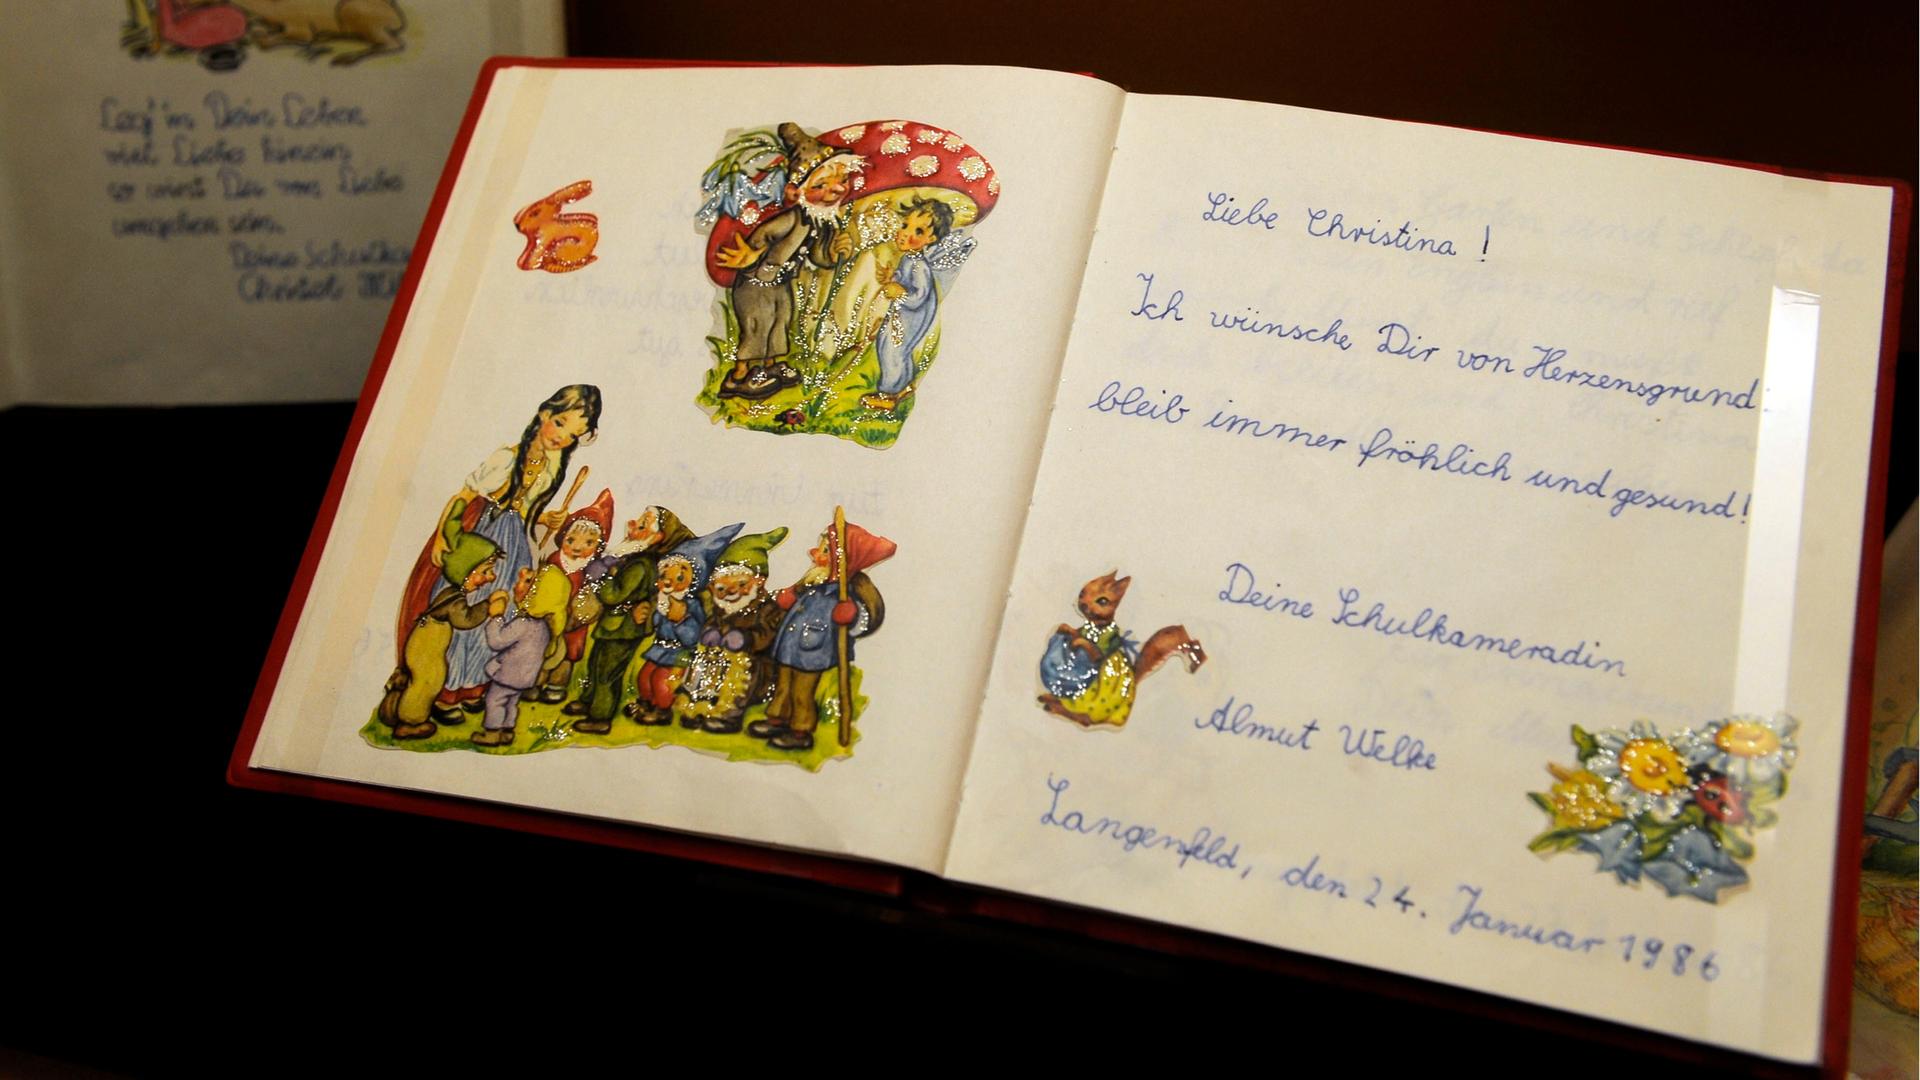 Leg' in Dein Leben
viel Liebe hinein
so wirst Du von Liebe
umgeben sein.
Deine
Christel
Liebe Christina!
Ich wünsche Dir von Herzensgrund
bleib immer fröhlich und gesund!
Deine Schulkameradin
Almut Welke
Langenfeld, den 24. Januar 1986